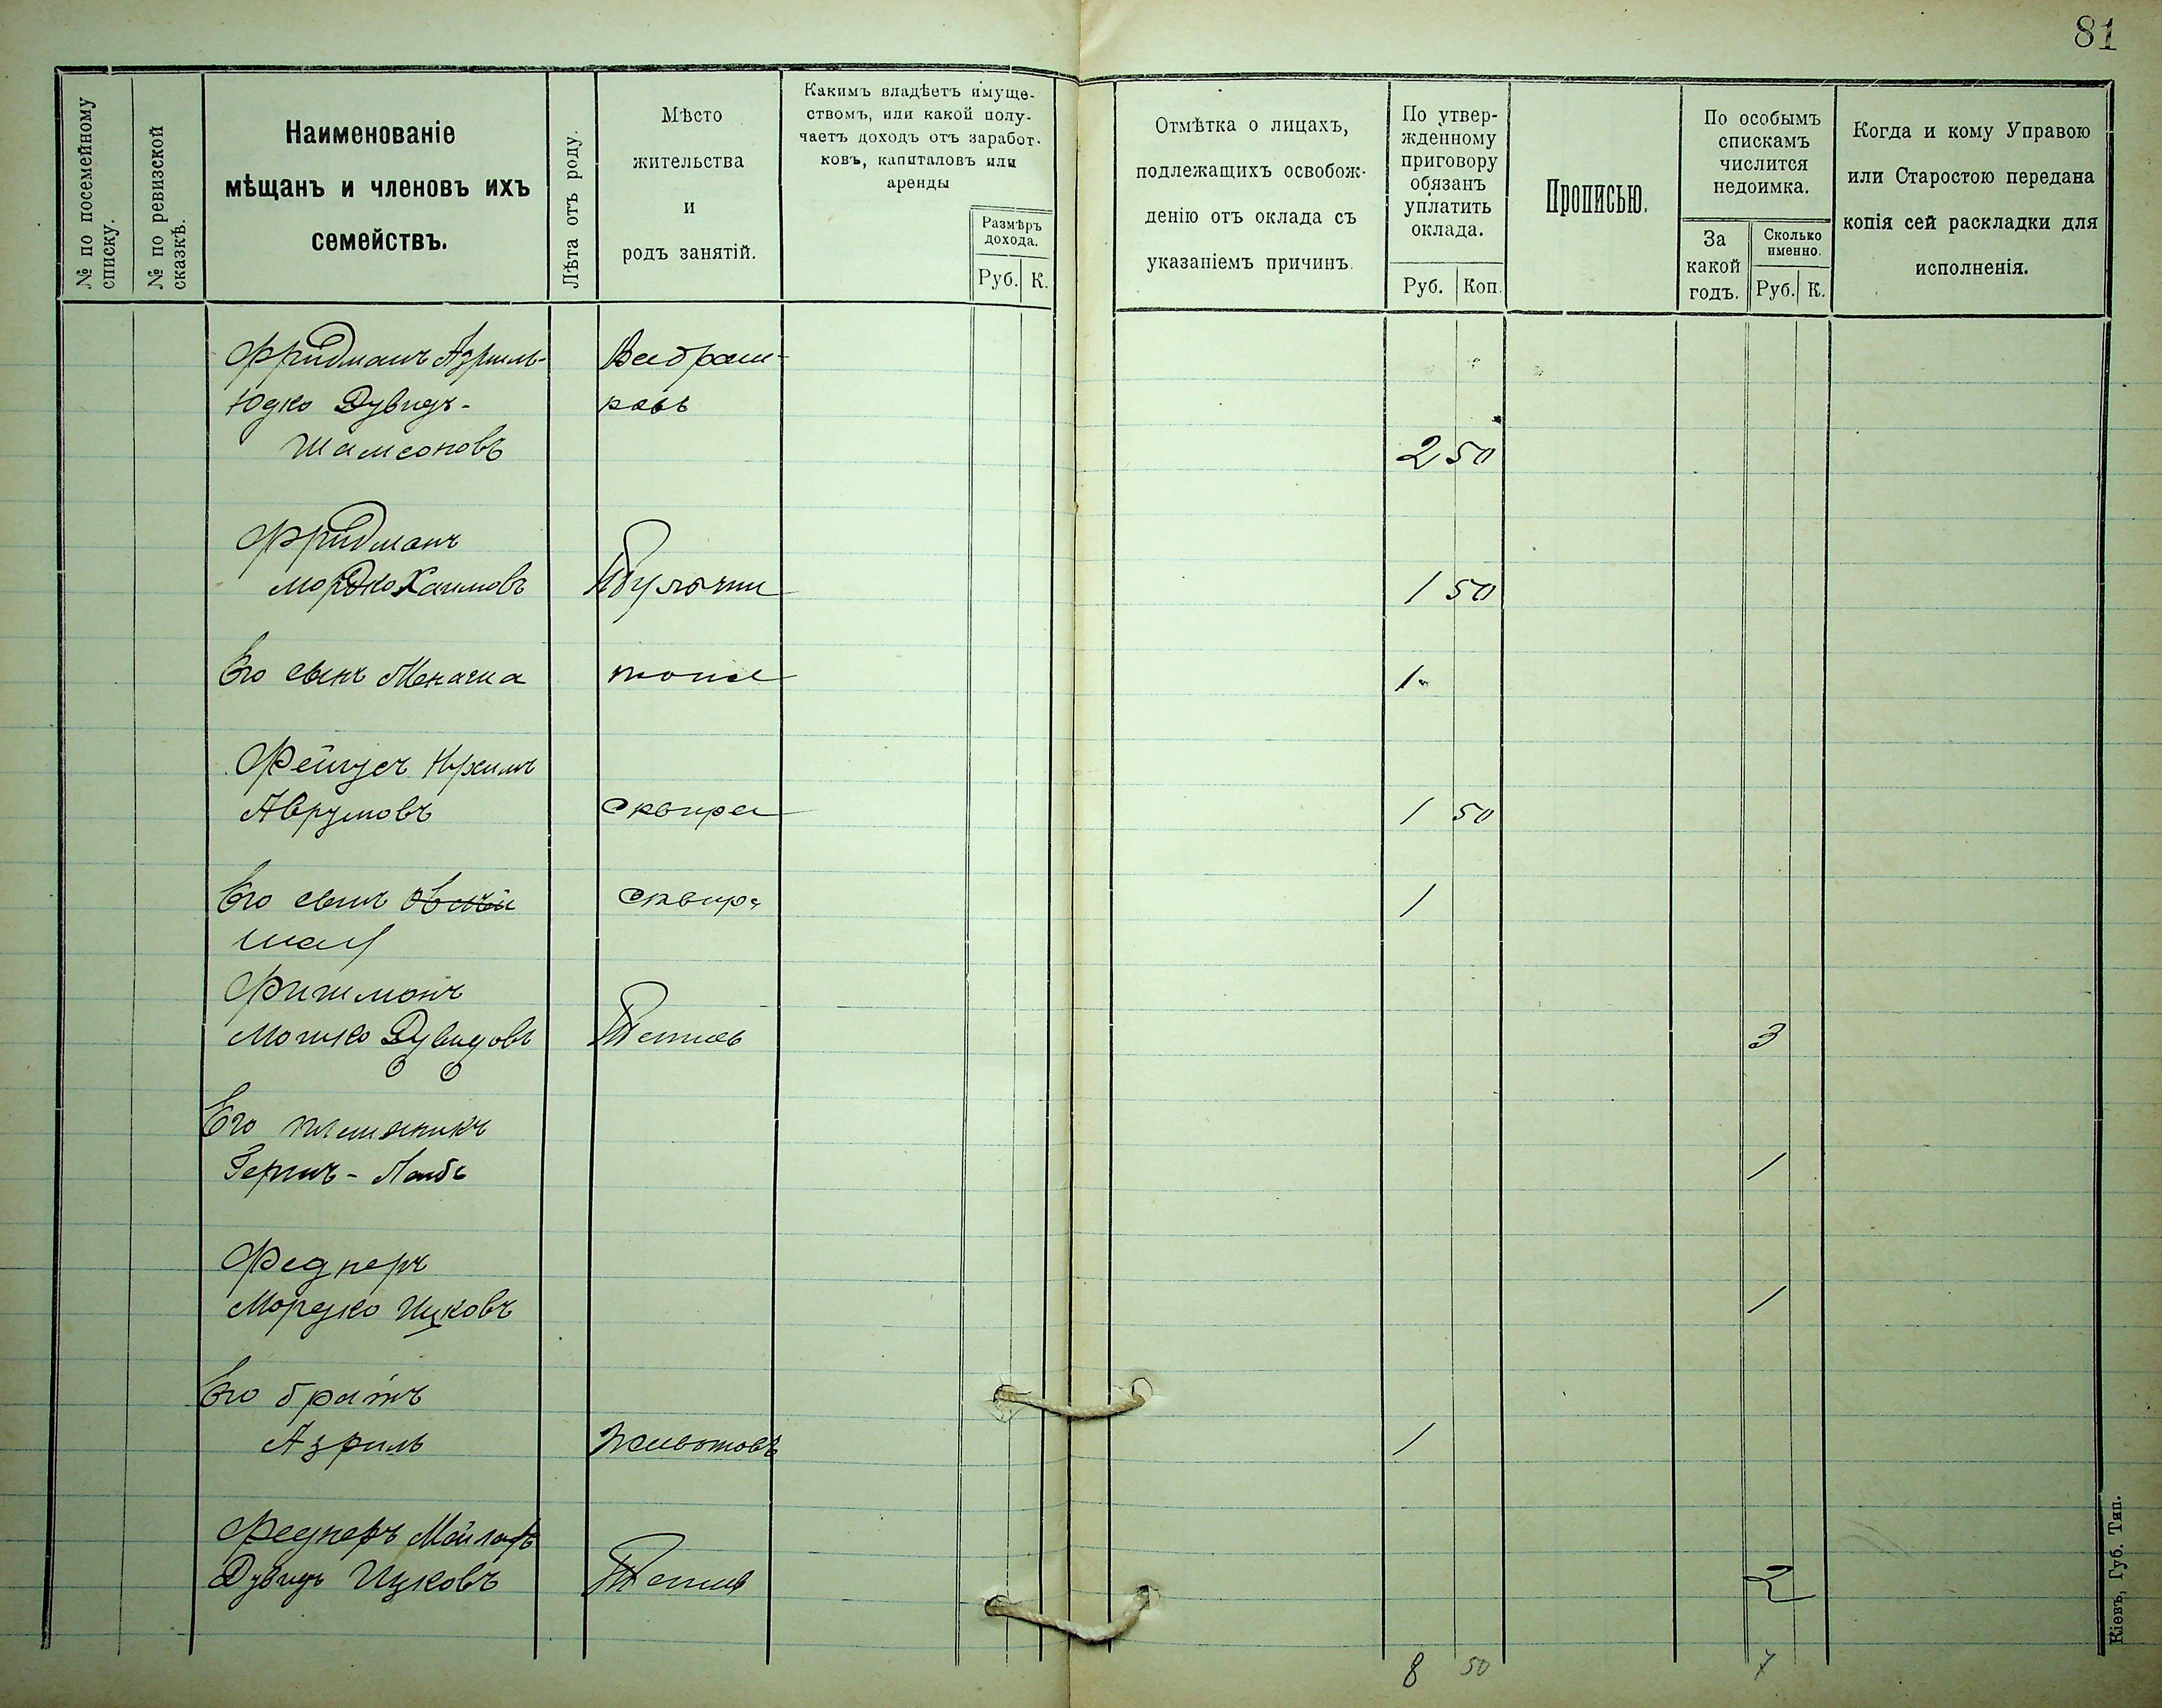 81
№ по посемейному списку.
№ по ревизской сказкѣ.
Наименованіе
мѣщанъ и членовъ ихъ
семействъ.
Лѣта отъ роду.
Мѣсто
жительства
и
родъ занятій.
Какимъ владѣетъ имуще-
ствомъ, или какой полу-
чаетъ доходъ отъ заработ-
ковъ, капиталовъ или
аренды
Размѣръ
дохода.
Руб. К.
Отмѣтка о лицахъ,
подлежащихъ освобож-
денію отъ оклада съ
указаніемъ причинъ.
По утвер-
жденному
приговору
обязанъ
уплатить
оклада.
Руб. Коп.
Прописью.
По особымъ
спискамъ
числится
недоимка.
За
какой
годъ.
Сколько
именно.
Руб. К.
Когда и кому Управою
или Старостою передана
копія сей раскладки для
исполненія.
Фридманъ Азриль-
Юдко Дувидъ-
Шамсоновъ 2 50
Фридманъ
Мордко Хаимовъ 1 50
Его сынъ Менаша 1
Аврумовъ Сквира 1 50
Его сынъ Сквира 1
Фишманъ
Мошко Дувидовъ Тетиев 3
Его племяникъ
Гершъ-Лейбъ 1
Феднеръ
Мордко Ицковъ 1
Его братъ
Азриль Животовъ 1
Феднеръ
Дувидъ Ицковъ Тетиев 2
8 50 7
Кіевъ, Губ. Тип.